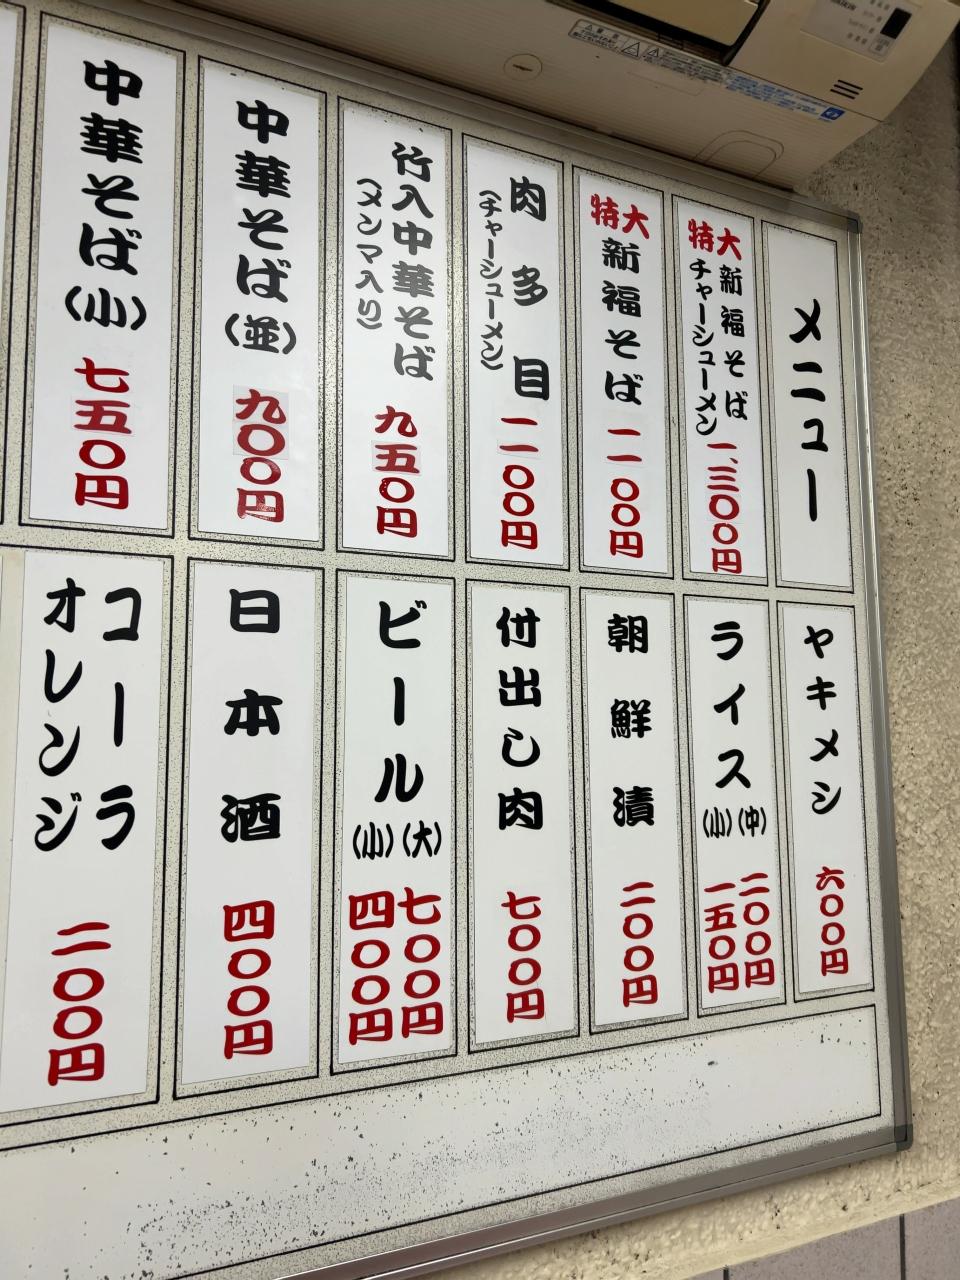 メニュー
特大
新福そば
チャーシューメン
一、三〇〇円
特大
新福そば
一一〇〇円
肉多目
(チャーシューメン)
一一〇〇円
竹入中華そば
(メンマ入り)
九五〇円
中華そば(並)
九〇〇円
中華そば(小)
七五〇円
ヤキメシ
六〇〇円
ライス
(中)
二〇〇円
(小)
一五〇円
朝鮮漬
二〇〇円
付出し肉
七〇〇円
ビール
(大)
七〇〇円
(小)
四〇〇円
日本酒
四〇〇円
コーラ
オレンジ
二〇〇円